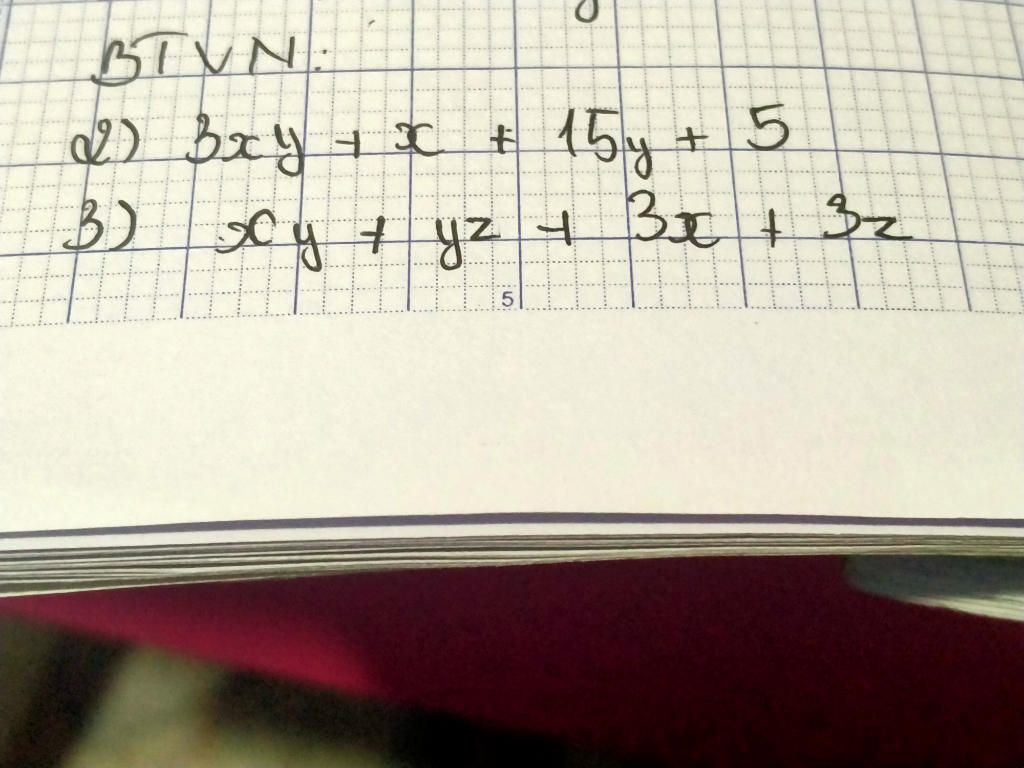 BTVN:
2) 3xy + x + 15y + 5
3) xy + yz + 3x + 3z
5